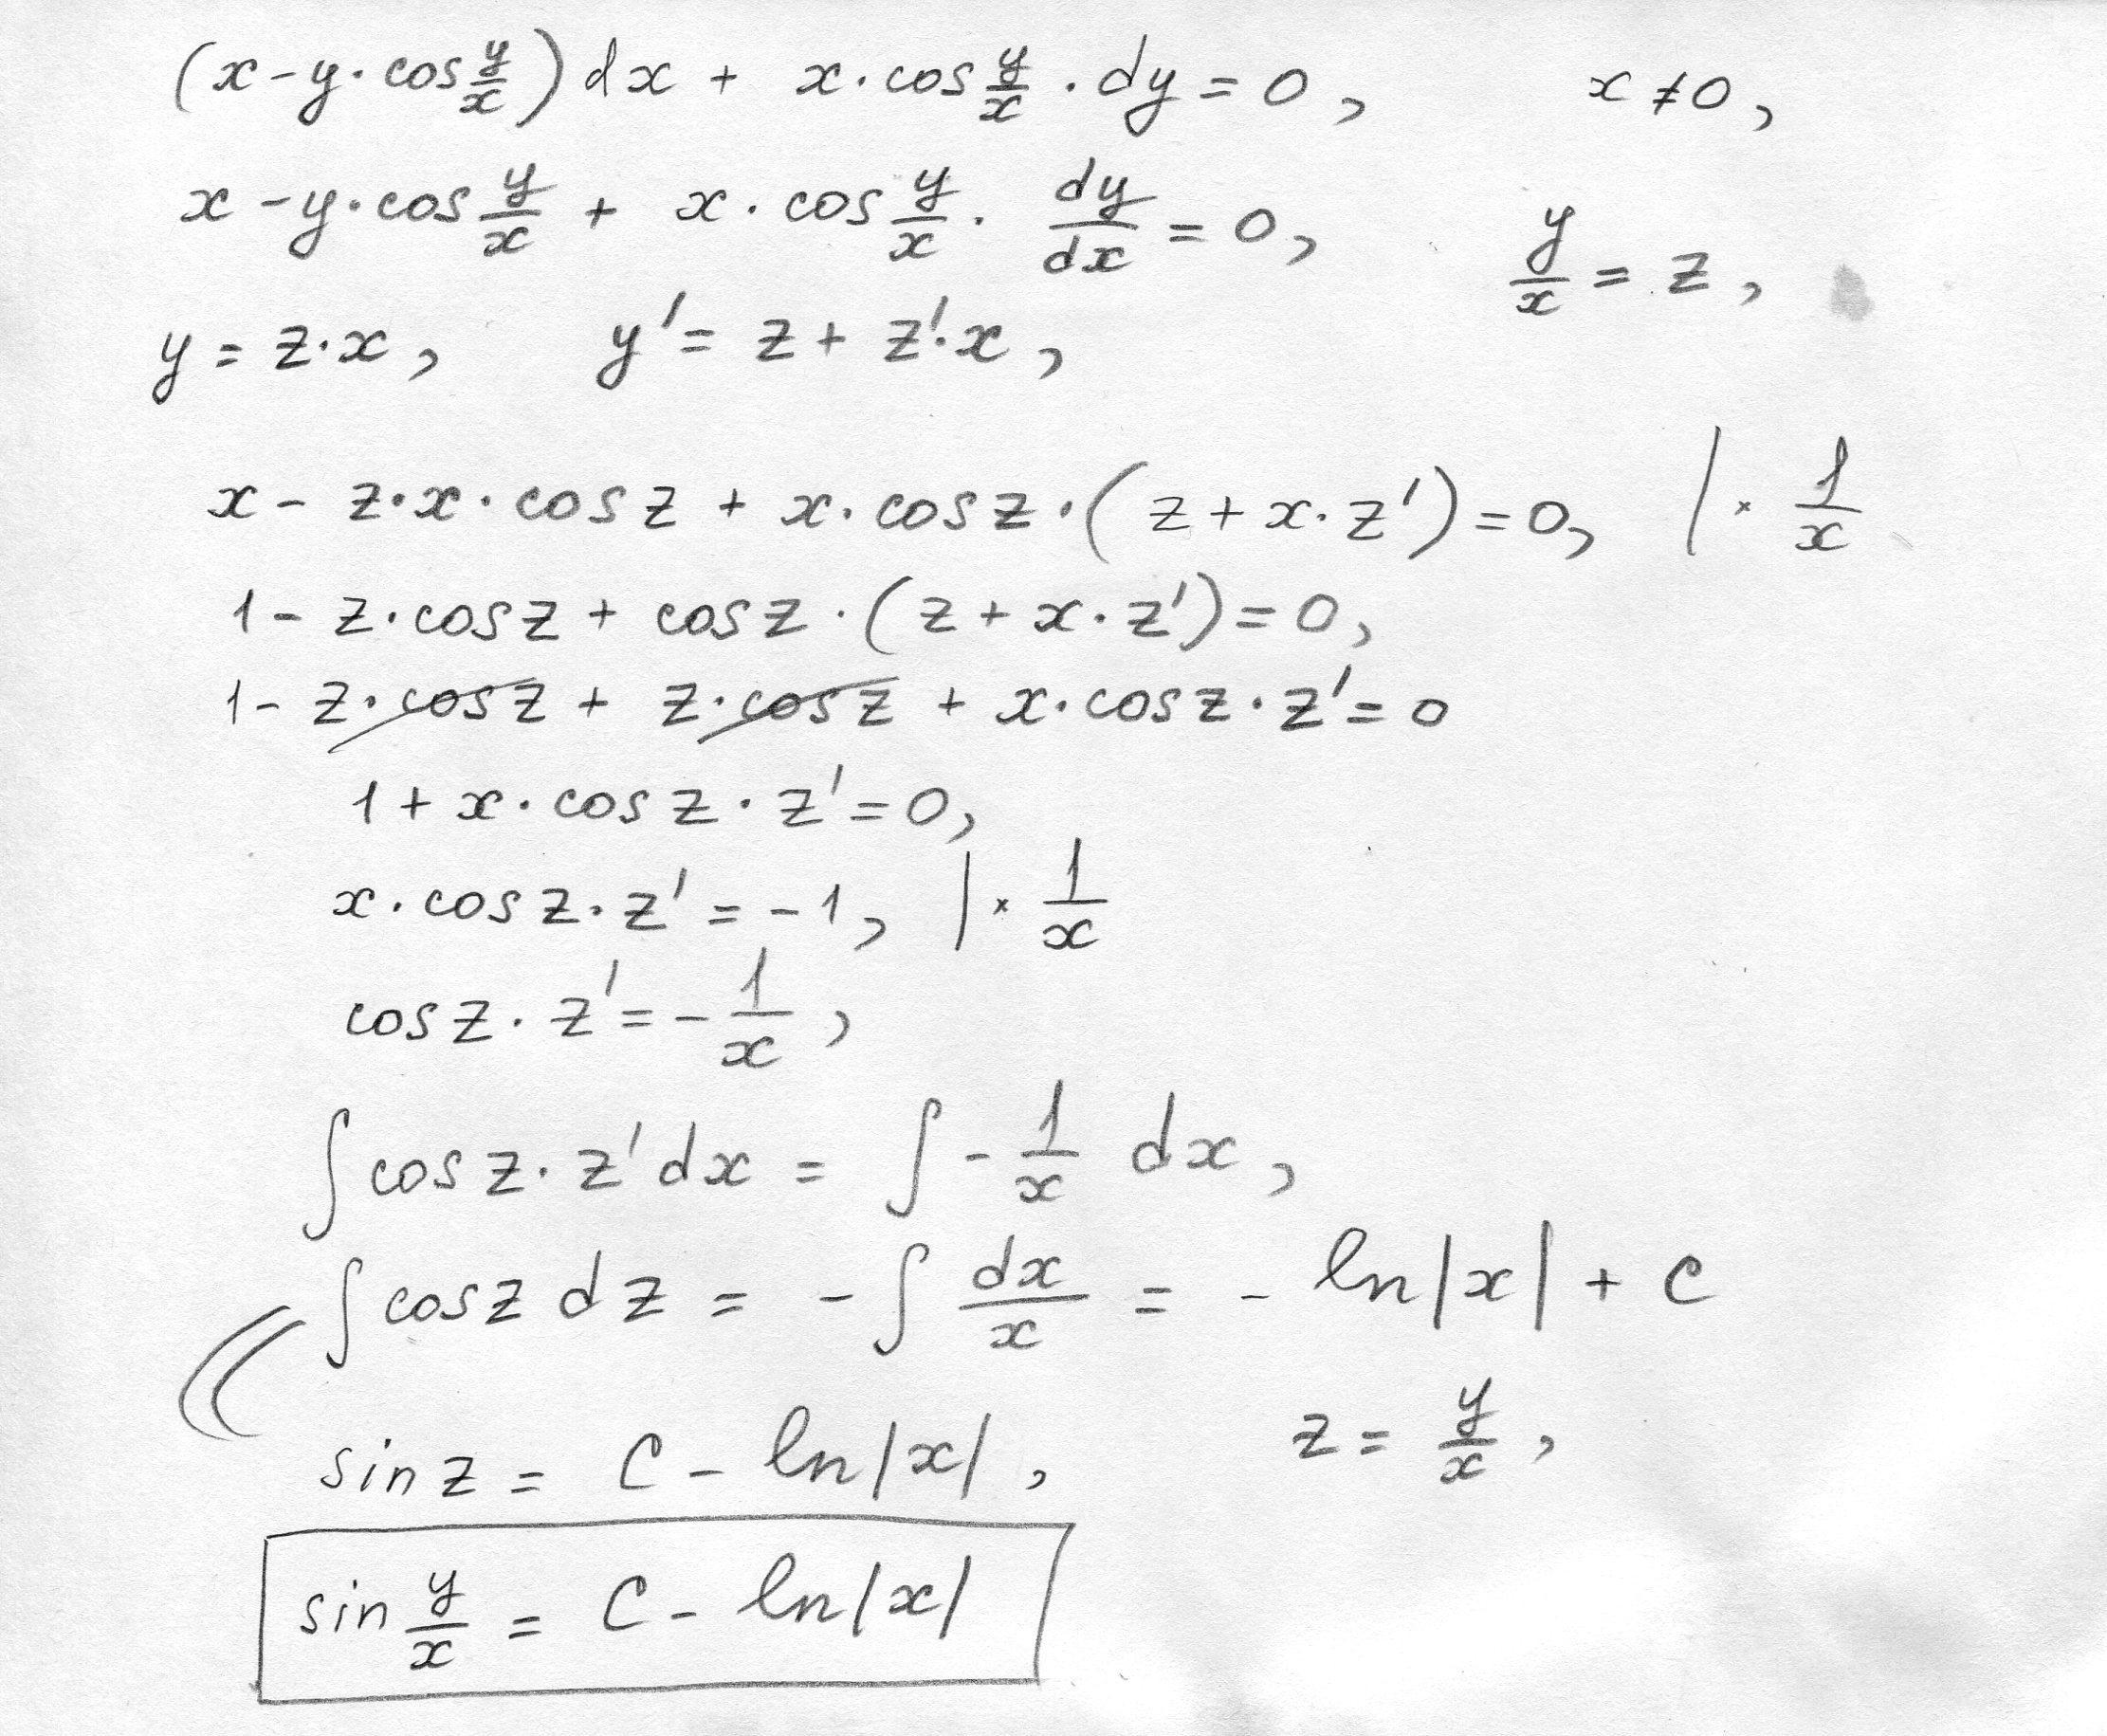 (x-y·cos y/x) dx + x·cos y/x · dy = 0, x ≠ 0,
x - y·cos y/x + x · cos y/x · dy/dx = 0, y/x = z,
y = z·x, y' = z + z'·x,
x - z·x·cos z + x·cos z·(z + x·z') = 0, | × 1/x
1 - z·cos z + cos z·(z + x·z') = 0,
1 - z·cos z + z·cos z + x·cos z·z' = 0
1 + x·cos z·z' = 0,
x·cos z·z' = -1, | × 1/x
cos z·z' = -1/x,
∫ cos z·z' dx = ∫ -1/x dx,
∫ cos z dz = -∫ dx/x = - ln|x| + C
sin z = C - ln|x|, z = y/x,
sin y/x = C - ln|x|